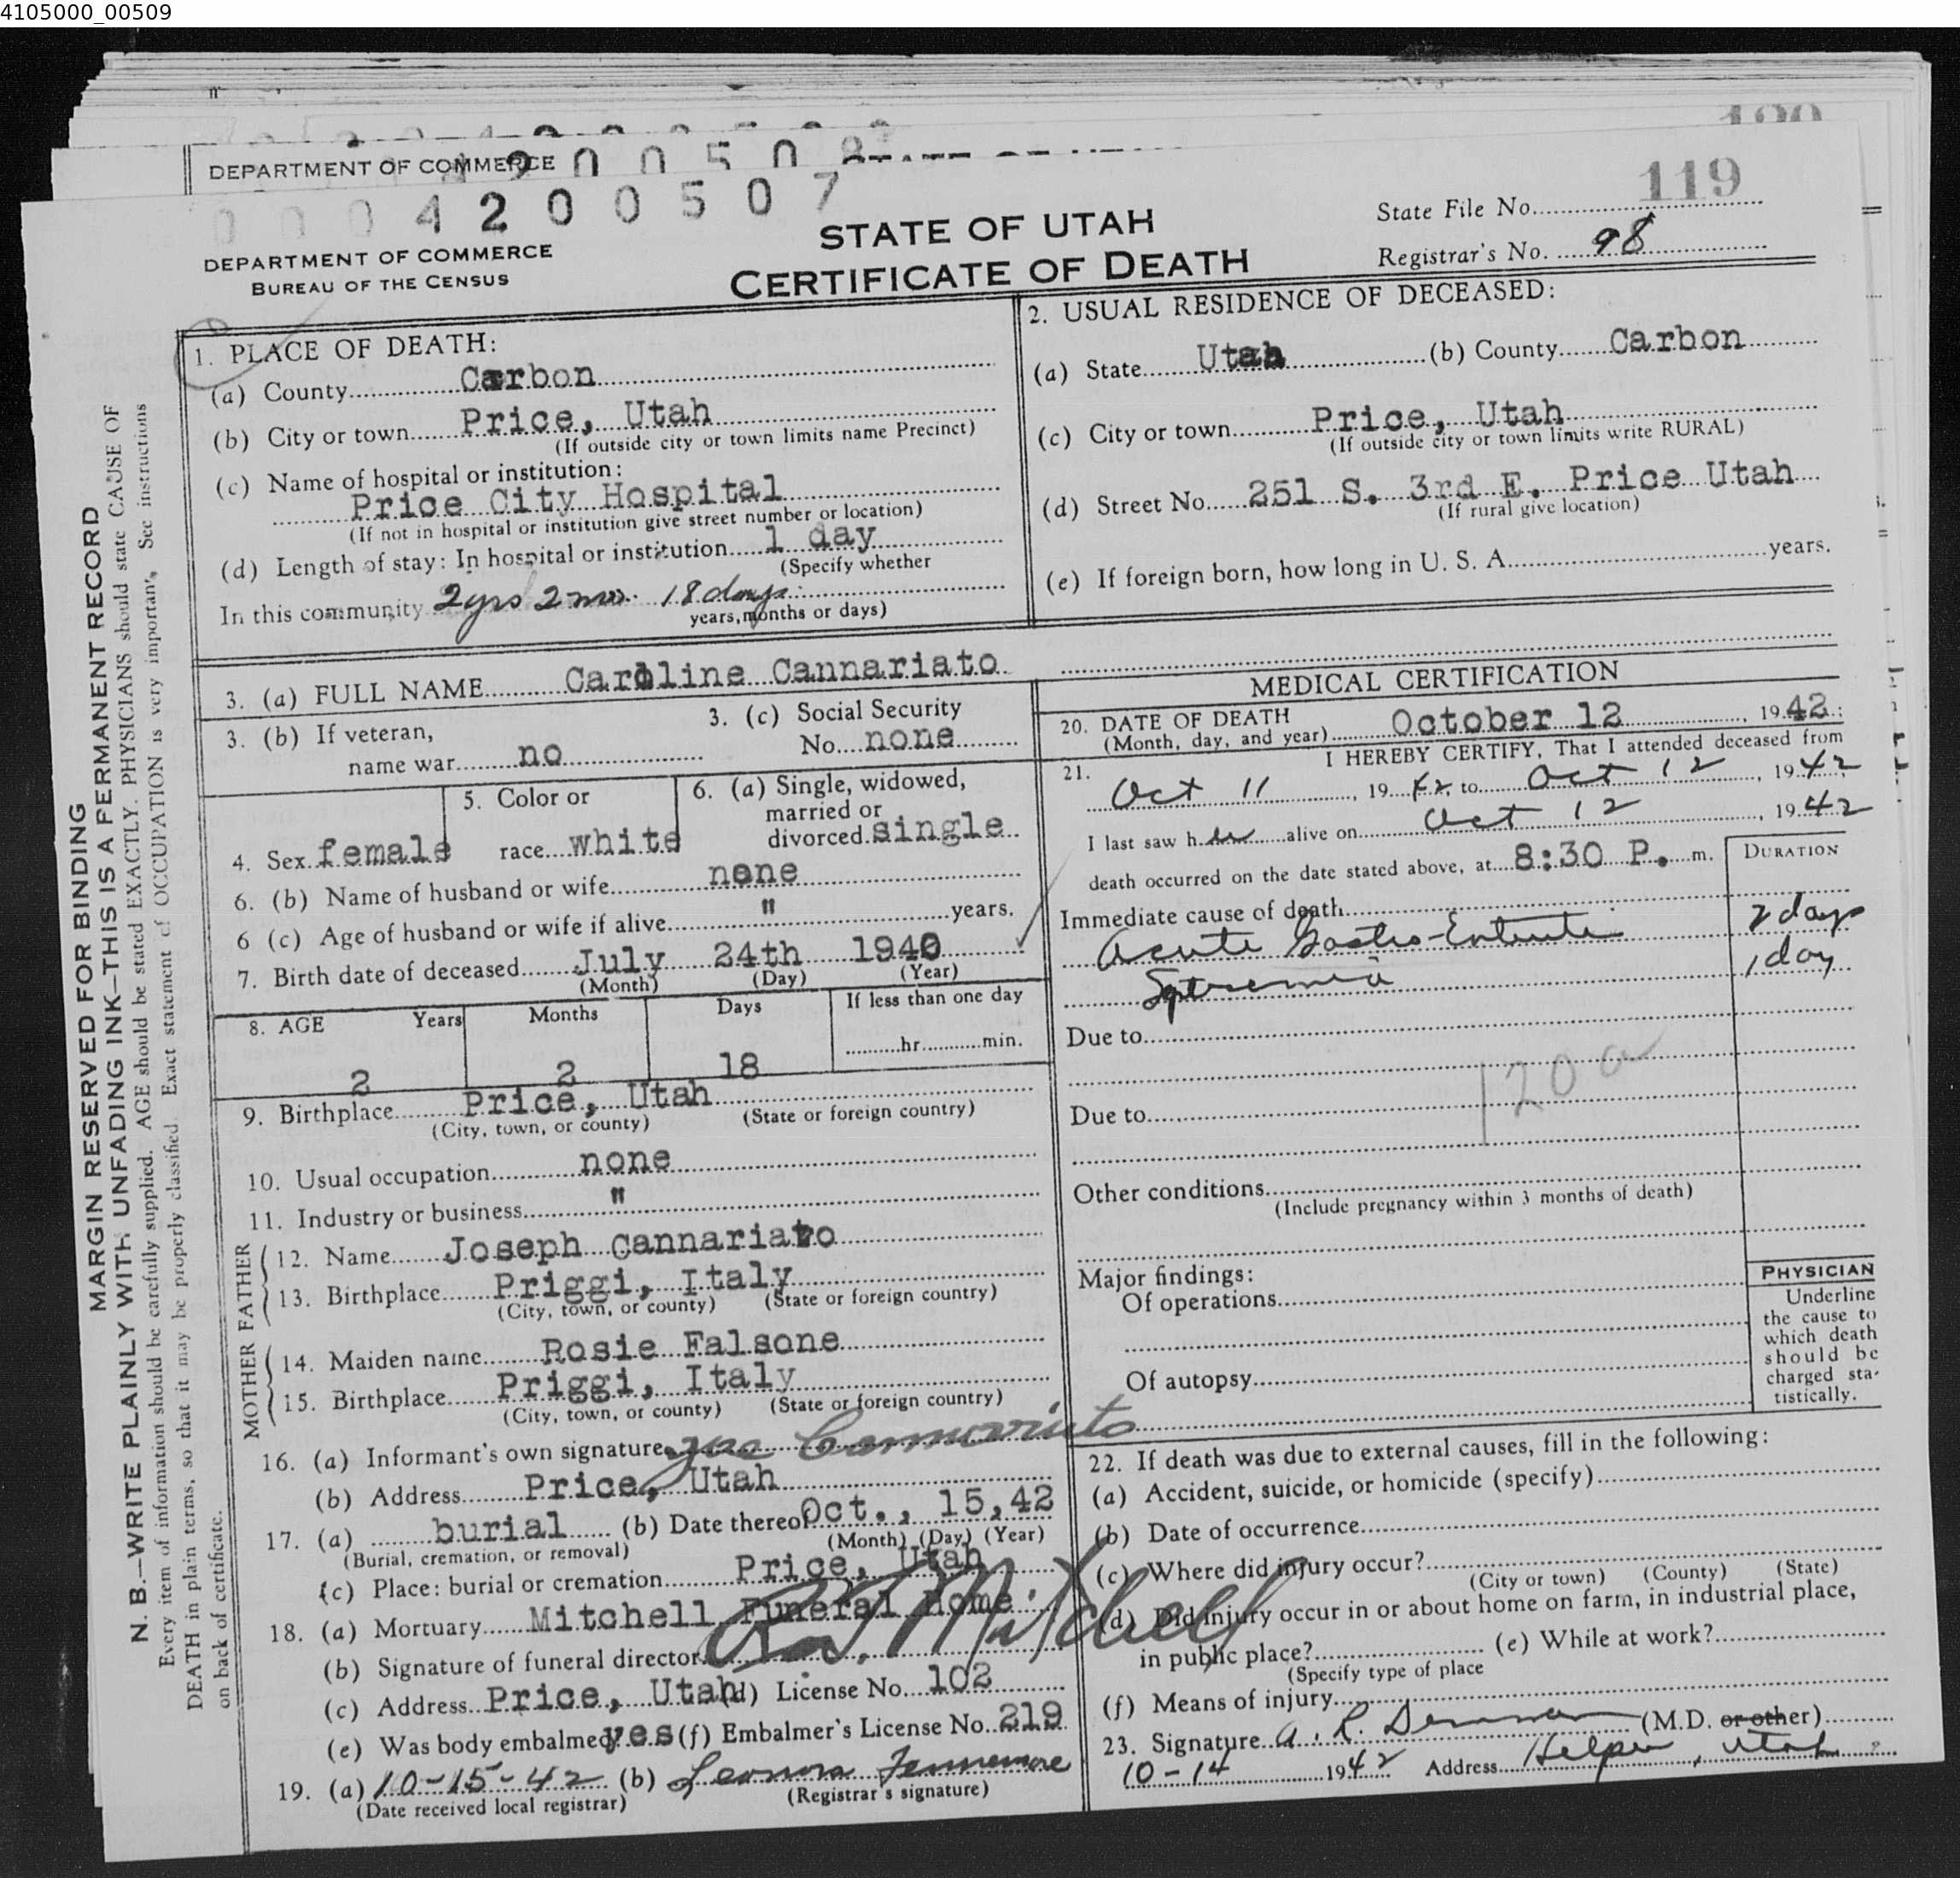 4105000_00509
120
DEPARTMENT OF COMMERCE
119
0004200507
STATE OF UTAH
CERTIFICATE OF DEATH
DEPARTMENT OF COMMERCE
BUREAU OF THE CENSUS
State File No.
Registrar's No. 98
1. PLACE OF DEATH:
(a) County Carbon
(b) City or town Price, Utah
(If outside city or town limits name Precinct)
(c) Name of hospital or institution:
Price City Hospital
(If not in hospital or institution give street number or location)
(d) Length of stay: In hospital or institution 1 day
(Specify whether
In this community 2 yrs 2 mos. 18 days
years, months or days)
2. USUAL RESIDENCE OF DECEASED:
(a) State Utah (b) County Carbon
(c) City or town Price, Utah
(If outside city or town limits write RURAL)
(d) Street No. 251 S. 3rd E. Price Utah
(If rural give location)
(e) If foreign born, how long in U. S. A. years.
3. (a) FULL NAME Caroline Cannariato
3. (b) If veteran,
name war no
3. (c) Social Security
No. none
4. Sex female
5. Color or
race white
6. (a) Single, widowed,
married or
divorced single
6. (b) Name of husband or wife none
6 (c) Age of husband or wife if alive " years.
7. Birth date of deceased July 24th 1940
(Month) (Day) (Year)
8. AGE Years Months Days If less than one day
2 2 18 hr. min.
9. Birthplace Price, Utah
(City, town, or county) (State or foreign country)
10. Usual occupation none
11. Industry or business "
FATHER
12. Name Joseph Cannariato
13. Birthplace Priggi, Italy
(City, town, or county) (State or foreign country)
MOTHER
14. Maiden name Rosie Falsone
15. Birthplace Priggi, Italy
(City, town, or county) (State or foreign country)
16. (a) Informant's own signature Joe Cannariato
(b) Address Price, Utah
17. (a) burial (b) Date thereof Oct., 15,42
(Burial, cremation, or removal) (Month) (Day) (Year)
(c) Place: burial or cremation Price, Utah
18. (a) Mortuary Mitchell Funeral Home
(b) Signature of funeral director Mitchell
(c) Address Price, Utah (d) License No. 102
(e) Was body embalmed? yes (f) Embalmer's License No. 219
19. (a) 10-15-42 (b) Leonora Fennemore
(Date received local registrar) (Registrar's signature)
MEDICAL CERTIFICATION
20. DATE OF DEATH
(Month, day, and year) October 12, 1942
21. I HEREBY CERTIFY, That I attended deceased from
Oct 11, 1942, to Oct 12, 1942
I last saw her alive on Oct 12, 1942
death occurred on the date stated above, at 8:30 P. m.
DURATION
Immediate cause of death
Acute Gastro-Enteritis 2 days
Septicemia 1 day
Due to
120a
Due to
Other conditions
(Include pregnancy within 3 months of death)
Major findings:
Of operations
Of autopsy
PHYSICIAN
Underline
the cause to
which death
should be
charged sta-
tistically.
22. If death was due to external causes, fill in the following:
(a) Accident, suicide, or homicide (specify)
(b) Date of occurrence
(c) Where did injury occur?
(City or town) (County) (State)
(d) Did injury occur in or about home on farm, in industrial place,
in public place? (e) While at work?
(Specify type of place
(f) Means of injury
23. Signature A. R. Demman (M.D. or other)
10-14 1942 Address Helper, Utah
MARGIN RESERVED FOR BINDING
N. B.—WRITE PLAINLY WITH UNFADING INK—THIS IS A PERMANENT RECORD
Every item of information should be carefully supplied. AGE should be stated EXACTLY. PHYSICIANS should state CAUSE OF
DEATH in plain terms, so that it may be properly classified. Exact statement of OCCUPATION is very important. See instructions
on back of certificate.